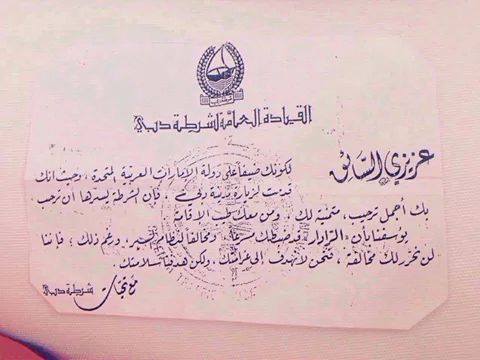 القيادة العامة لشرطة دبي
عزيزي السائق
لكونك ضيفا على دولة الإمارات العربية المتحدة ، وحيث انك
قدمت لزيارة مدينة دبي ، فإن الشرطة يسرها أن ترحب
بك أجمل ترحيب ، متمنية لك ، ومن معك طيب الاقامة
يؤسفنا بأن ، الرادار قد ضبطك مسرعا ، ومخالفا لنظام السير ، ورغم ذلك ؛ فإننا
لن نحرر لك مخالفة ، فنحن لا نهدف إلى غرامتك ، ولكن هدفنا سلامتك .
مع تحيات شرطة دبي